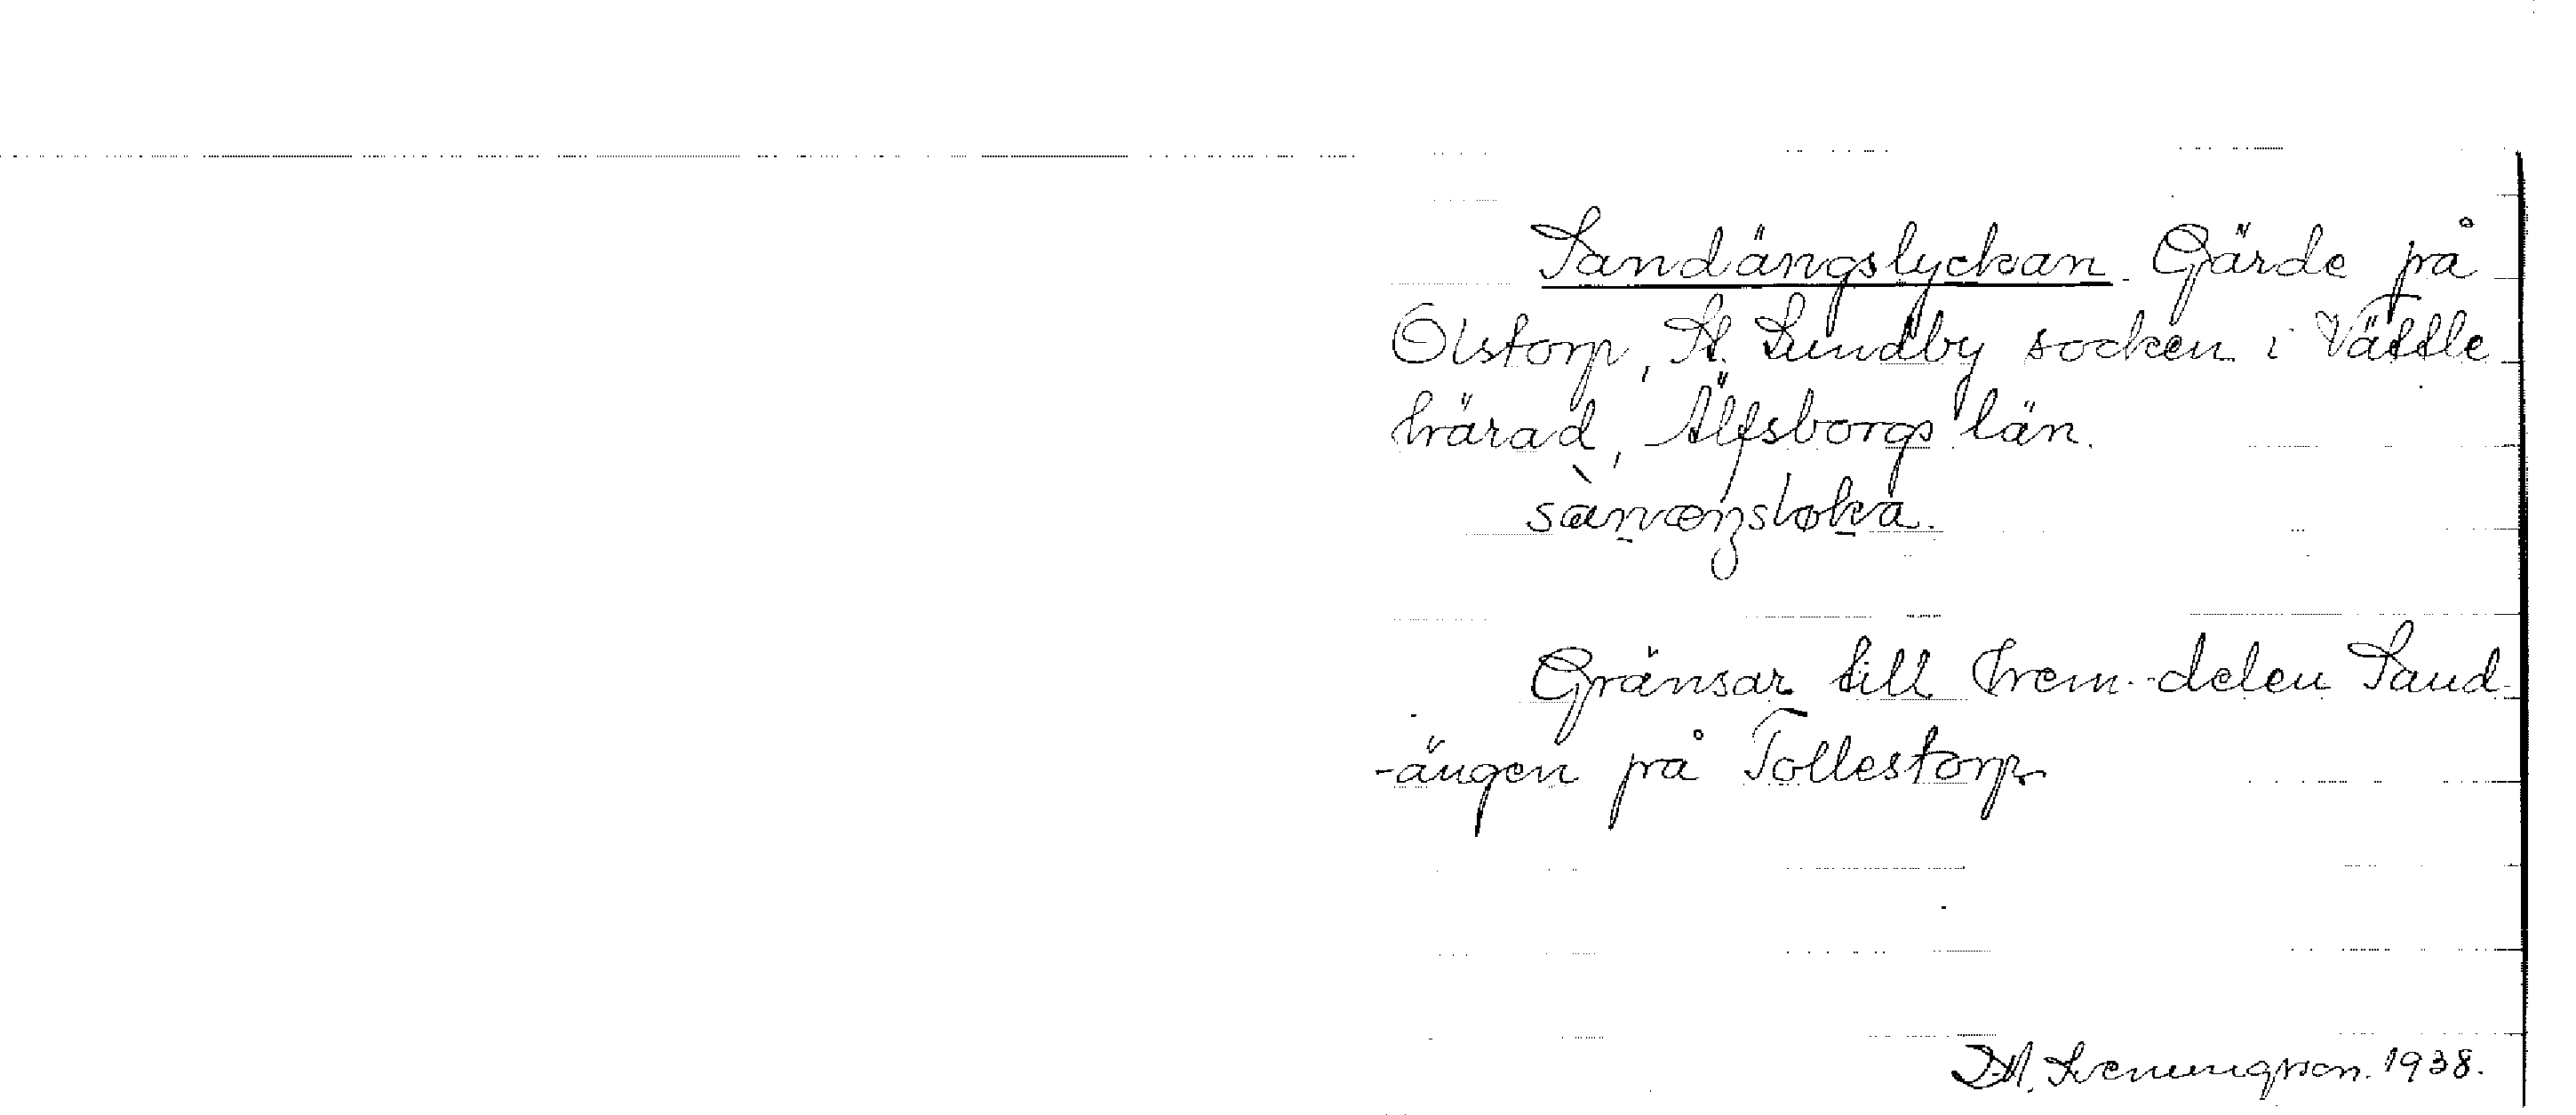 Sandängslyckan. Gärde på
Olstorp, St. Lundby socken i Vättle
härad, Älfsborgs län.
sànænsløka.
Gränsar till hem-delen Sand-
-ängen på Tollestorp
1938.